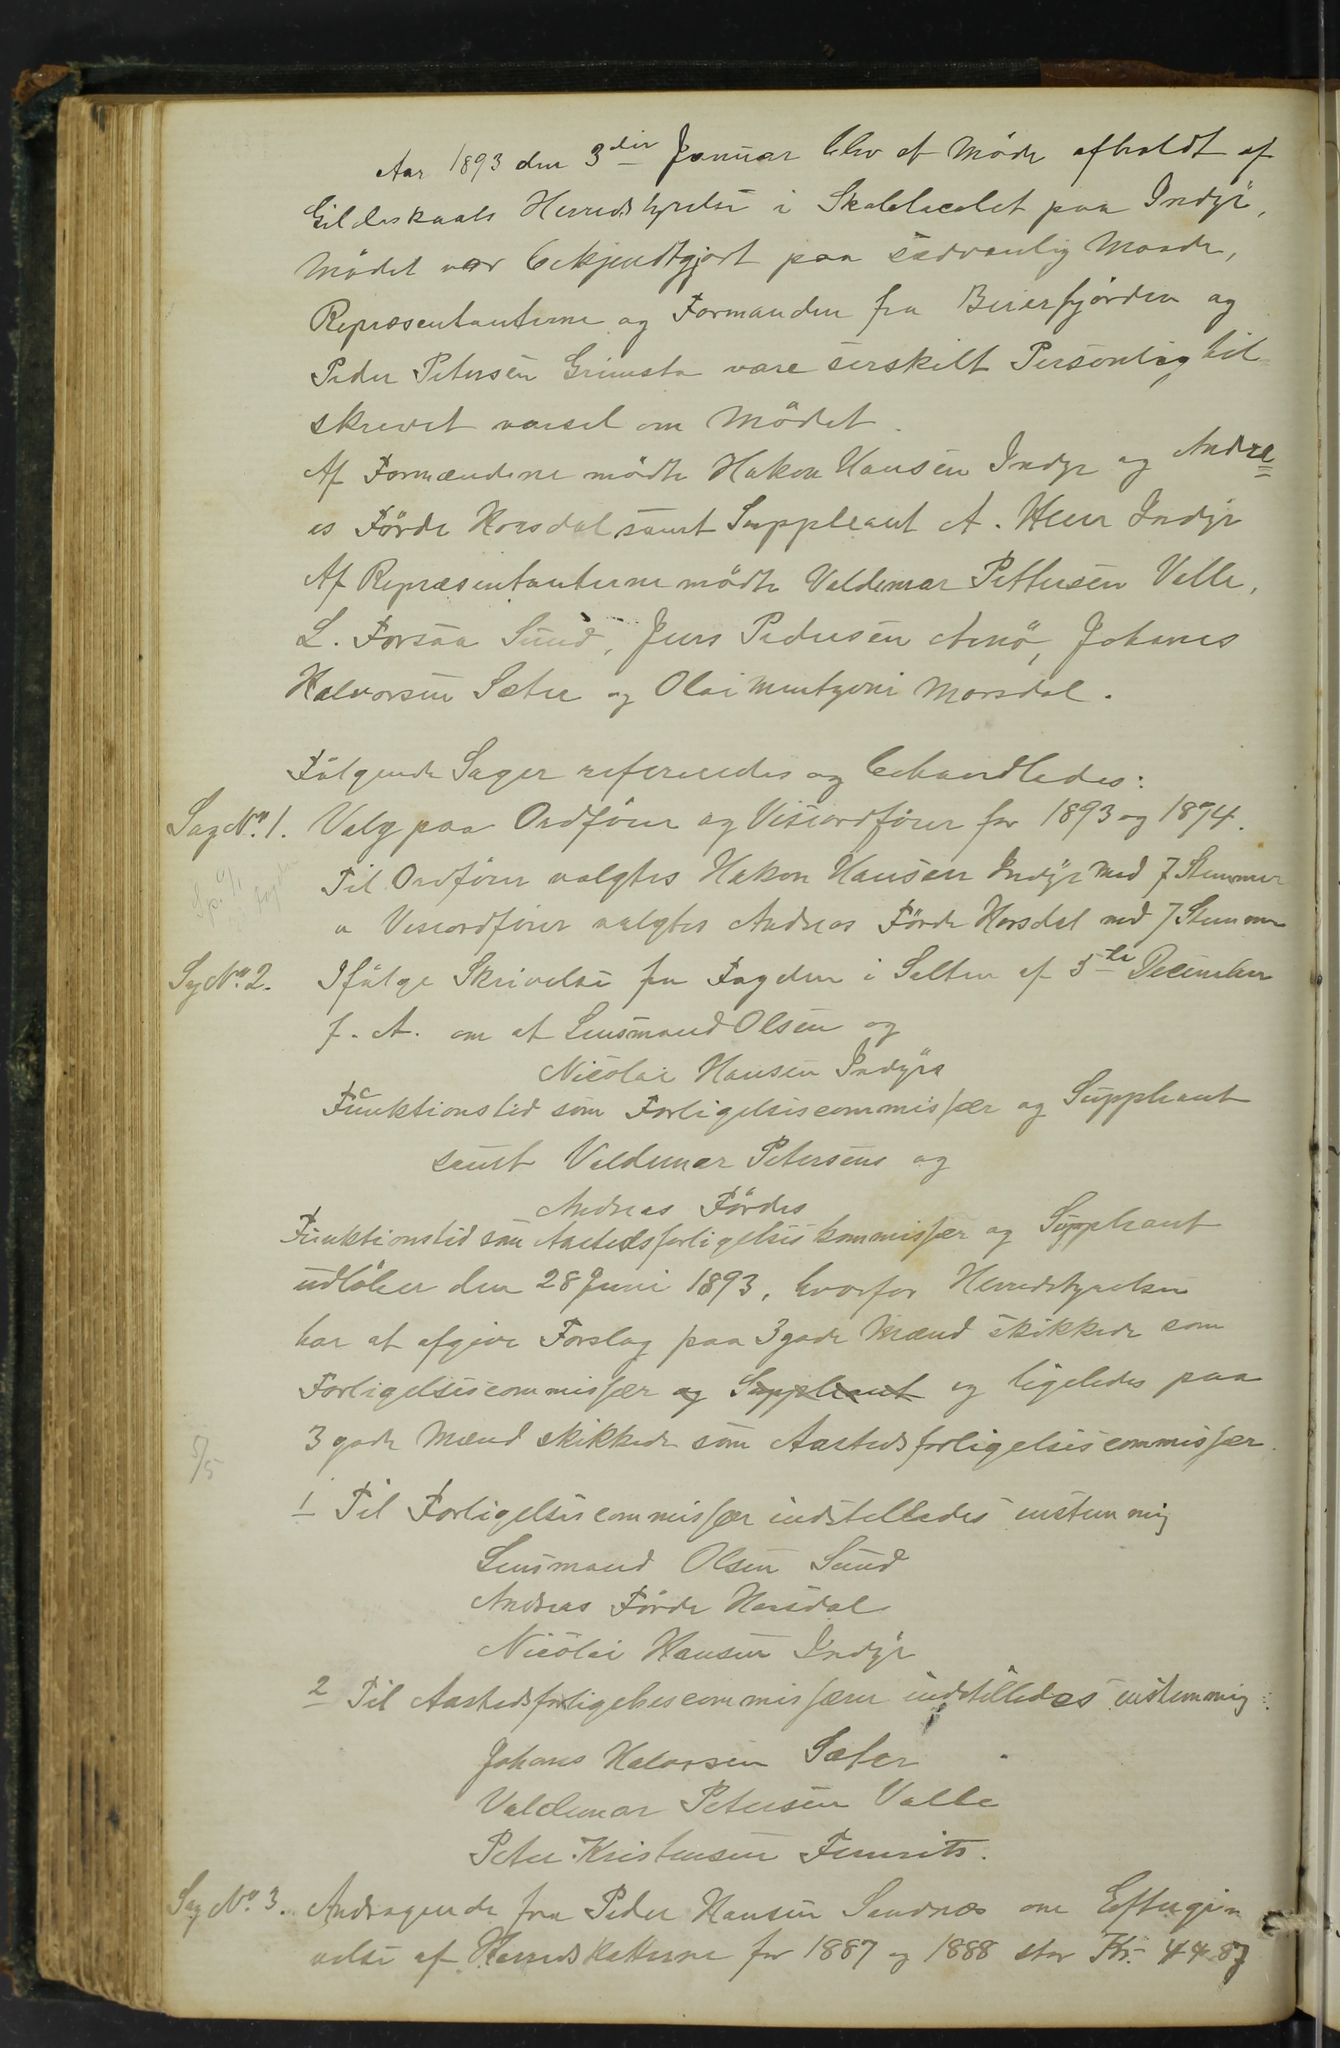 Aar 1893 den 3die Januar blev et Möde afholdt af
Gildeskaals Herredstyrelse i Skolelocalet paa Indyr,
Mödet var bekjendtgjort paa sædvanlig Maade,
Repræsentanterne og Formanden fra Beierfjorden og
Peder Petersen Grimsta vare særskilt Personlig til-
skrevet varsel om Mödet.
Af Formændene mödte Hakon Hansen Indyr og Andre=
es Förde Horsdal samt Suppleant A. Hun Indyr
Af Repræsentanterne mödte Valdemar Pettersen Valle,
L. Forsaa Sund, Jens Pedersen Arnö, Johanes
Halvorsen Sæter og Olai Mentzoni Morsdal.
Fölgende Sager refereredes og behandledes:
Sag No. 1. Valg paa Ordförer og Viseordförer for 1893 og 1894.
Til Ordförer valgtes Hakon Hansen Indyr med 7 Stemmer
a Viseordförer valgtes Andreas Förde Horsdal med 7 Stemmer
Sag No. 2. Ifölge Skrivelse fra Fogden i Salten af 5te December
f. A. om at Lensmand Olsen og
Nicolai Hansen Indyrs
Funktionstid som Forligelsiscommissær og Suppleant
samt Valdemar Petersens og
Andreas Fördes
Funktionstid som Aastedsforligelsiskommissær og Suppleant
udlöber den 28 Juni 1893, hvorfor Herredstyrelsen
har at afgive Forslag paa 3 gode Mænd skikkede som
Forligelsiscommissær og Suppleant og ligeledes paa
3 gode Mænd skikkede som Aastedsforligelsiscommissær.
5/5
1 Til Forligelsiscommissær indstilledes enstemmig
Lensmand Olsen Sund
Andreas Förde Horsdal
Nicolai Hansen Indyr
2 Til Aastedsforligelsescommissærer indstilledes enstemmig:
Johans Halvorsen Sæter
Valdemar Petersen Valle
Peter Kristensen
Sag No. 3. Andragende fra Peder Hansen Sandnæs om Eftergi=
velse af Herredskatterne for 1887 og 1888 stor Kr. 44.87